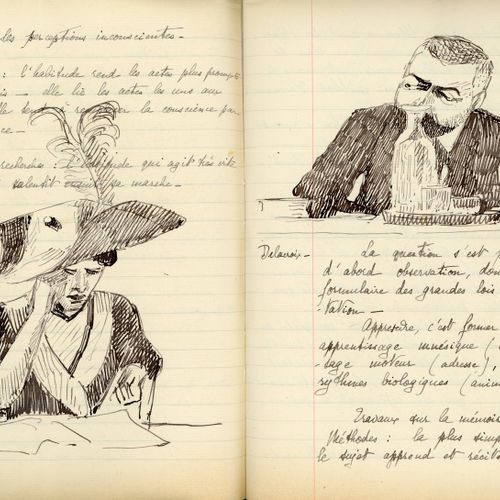 les perceptions inconscientes -
: l'habitude rend les actes plus prompts
is - elle lie les actes les uns aux
la conscience par
ce -
recherches : L'habitude qui agit très vite
salentit sa marche -
Delacroix -
La question s'est p
d'abord observation, don
formulaire des grandes lois
-tation -
Apprendre, c'est former
apprentissage mnésique (
-sage moteur (adresse),
rythmes biologiques (anim
Travaux sur la mémois
Méthodes : la plus simp
le sujet apprend et récit